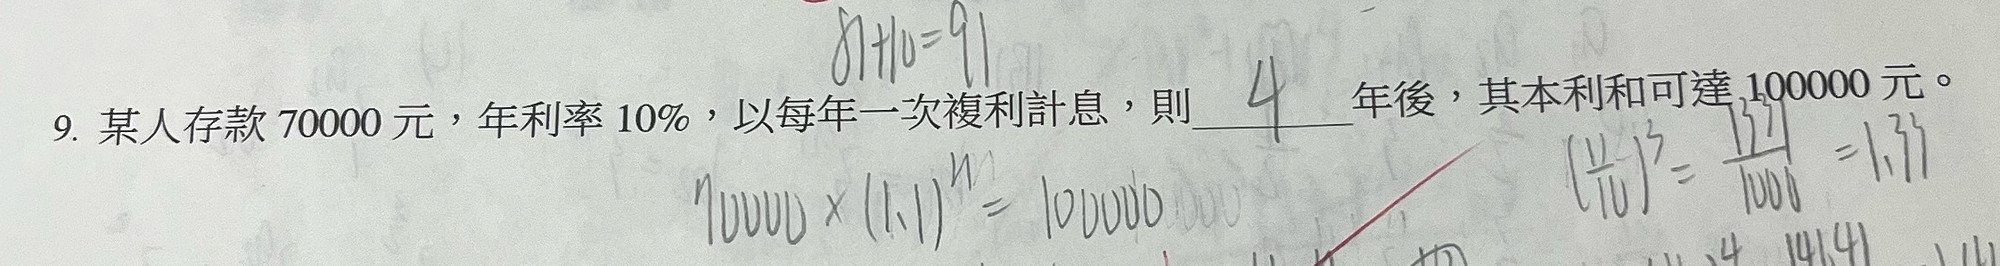 81+10=91
9. 某人存款 70000 元，年利率 10%，以每年一次複利計息，則 4 年後，其本利和可達 100000 元。
70000 × (1.1)ⁿ = 100000
(11/10)³ = 1331/1000 = 1.33